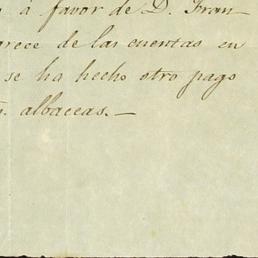 á favor de D. Fran-
rece de las cuentas en
se ha hecho otro pago
albaceas.—